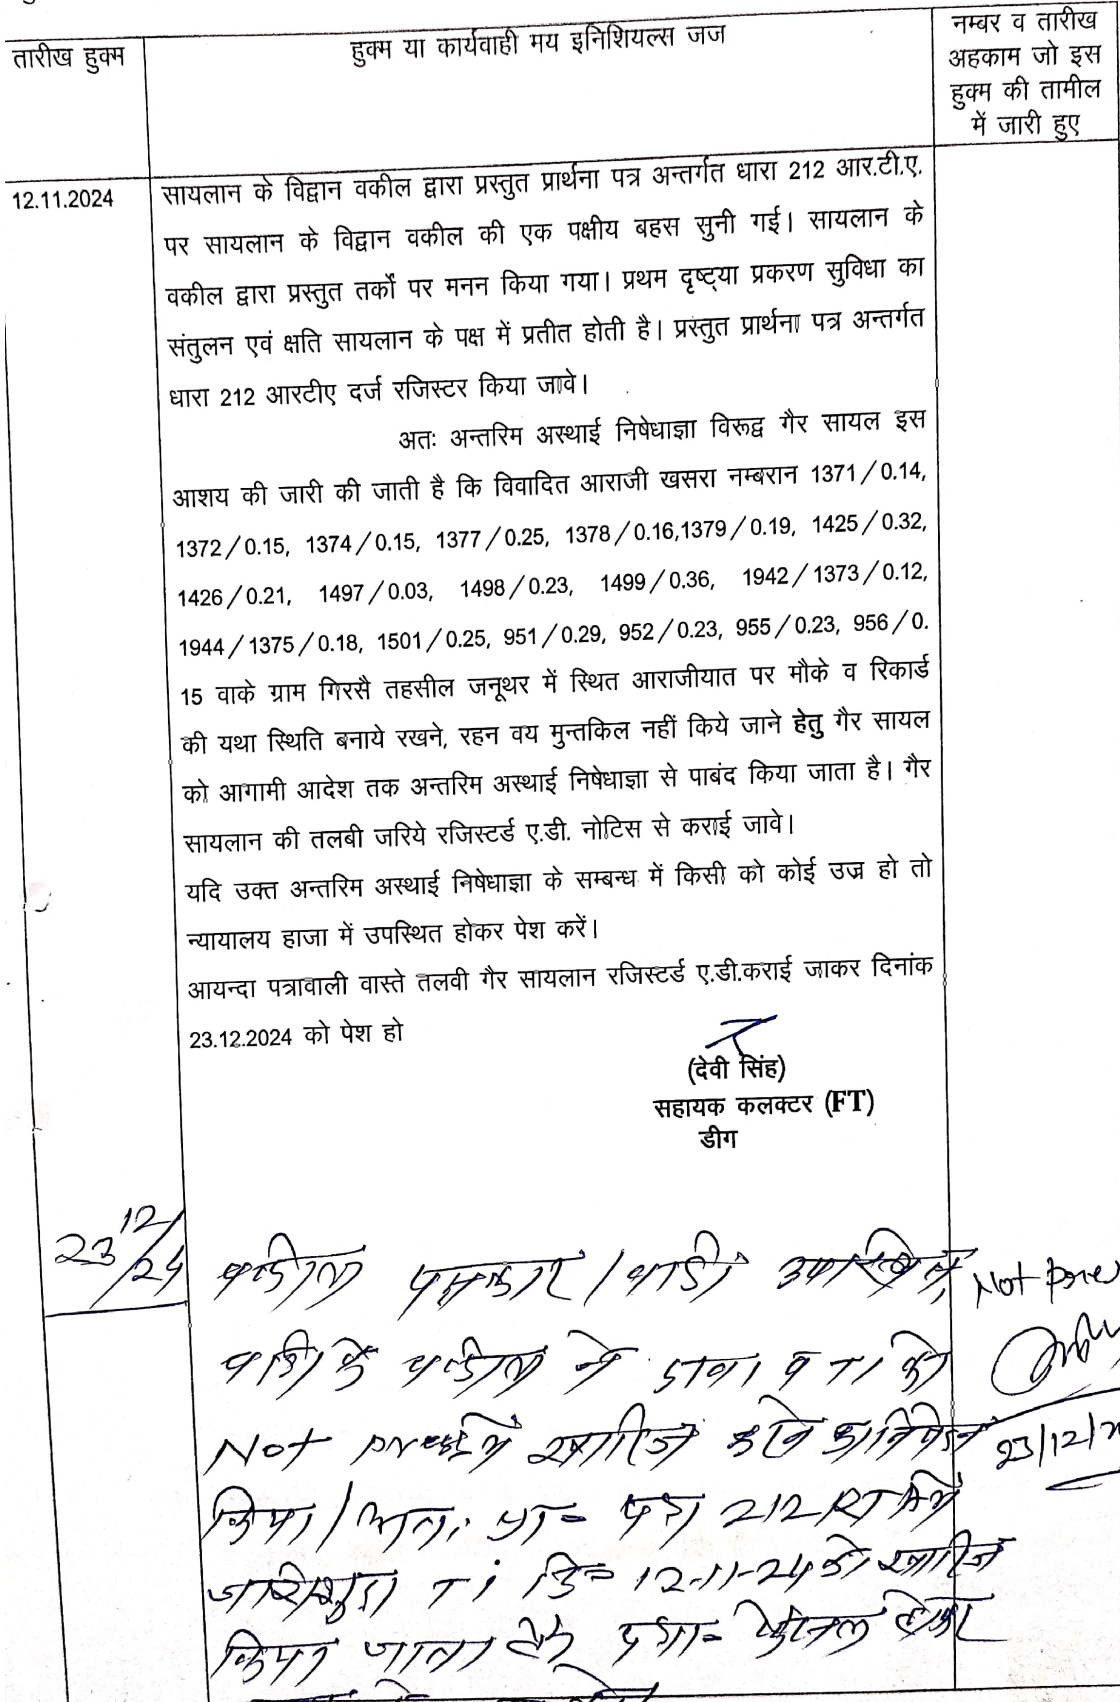 तारीख हुक्म
हुक्म या कार्यवाही मय इनिशियल्स जज
नम्बर व तारीख
अहकाम जो इस
हुक्म की तामील
में जारी हुए
12.11.2024
सायलान के विद्वान वकील द्वारा प्रस्तुत प्रार्थना पत्र अन्तर्गत धारा 212 आर.टी.ए.
पर सायलान के विद्वान वकील की एक पक्षीय बहस सुनी गई। सायलान के
वकील द्वारा प्रस्तुत तर्कों पर मनन किया गया। प्रथम दृष्ट्या प्रकरण सुविधा का
संतुलन एवं क्षति सायलान के पक्ष में प्रतीत होती है। प्रस्तुत प्रार्थना पत्र अन्तर्गत
धारा 212 आरटीए दर्ज रजिस्टर किया जावे।
अतः अन्तरिम अस्थाई निषेधाज्ञा विरूद्व गैर सायल इस
आशय की जारी की जाती है कि विवादित आराजी खसरा नम्बरान 1371/0.14,
1372/0.15, 1374/0.15, 1377/0.25, 1378/0.16,1379/0.19, 1425/0.32,
1426/0.21, 1497/0.03, 1498/0.23, 1499/0.36, 1942/1373/0.12,
1944/1375/0.18, 1501/0.25, 951/0.29, 952/0.23, 955/0.23, 956/0.
15 वाके ग्राम गिरसै तहसील जनूथर में स्थित आराजीयात पर मौके व रिकार्ड
की यथा स्थिति बनाये रखने, रहन वय मुन्तकिल नहीं किये जाने हेतु गैर सायल
को आगामी आदेश तक अन्तरिम अस्थाई निषेधाज्ञा से पाबंद किया जाता है। गैर
सायलान की तलबी जरिये रजिस्टर्ड ए.डी. नोटिस से कराई जावे।
यदि उक्त अन्तरिम अस्थाई निषेधाज्ञा के सम्बन्ध में किसी को कोई उज्र हो तो
न्यायालय हाजा में उपस्थित होकर पेश करें।
आयन्दा पत्रावाली वास्ते तलवी गैर सायलान रजिस्टर्ड ए.डी.कराई जाकर दिनांक
23.12.2024 को पेश हो
(देवी सिंह)
सहायक कलक्टर (FT)
डीग
23/12/24
वकील पक्षकार / वादी उपस्थित,
वादी के वकील ने दावा व TI को
Not press में खारिज करने का निवेदन
किया। अतः प्रा= पत्र 212 RTA में
जारीशुदा TI दि= 12-11-24 को खारिज
किया जाता है। पत्रा= फैसल होकर
Not press
23/12/